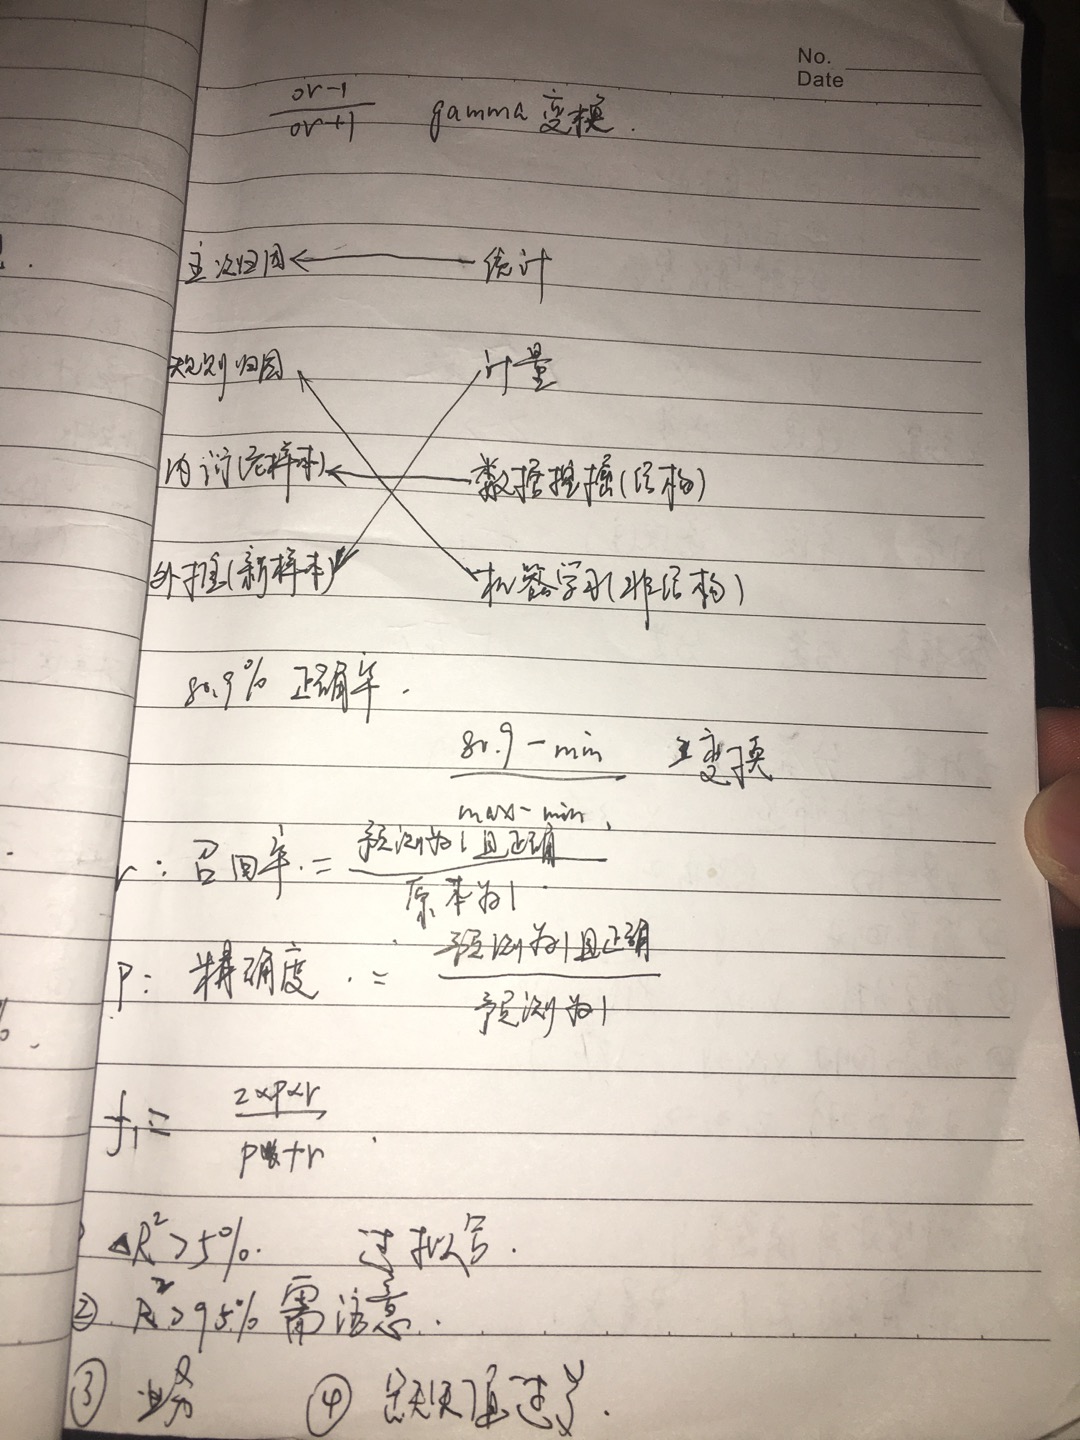 No.
Date
or-1
or+1
gamma 变换.
主次归因 统计
规则归因 计量
内训(老样本) 数据挖掘(结构)
外推(新样本) 机器学习(非结构)
80.9% 正确率.
80.9-min
max-min
变换
r: 召回率. = 预测为1且正确
原本为1
p: 精确度. = 预测为1且正确
预测为1
f1= 2×p×r
p+r
ΔR²>5%. 过拟合.
② R²>95% 需注意.
③ 业务 ④ 缺失值过多.